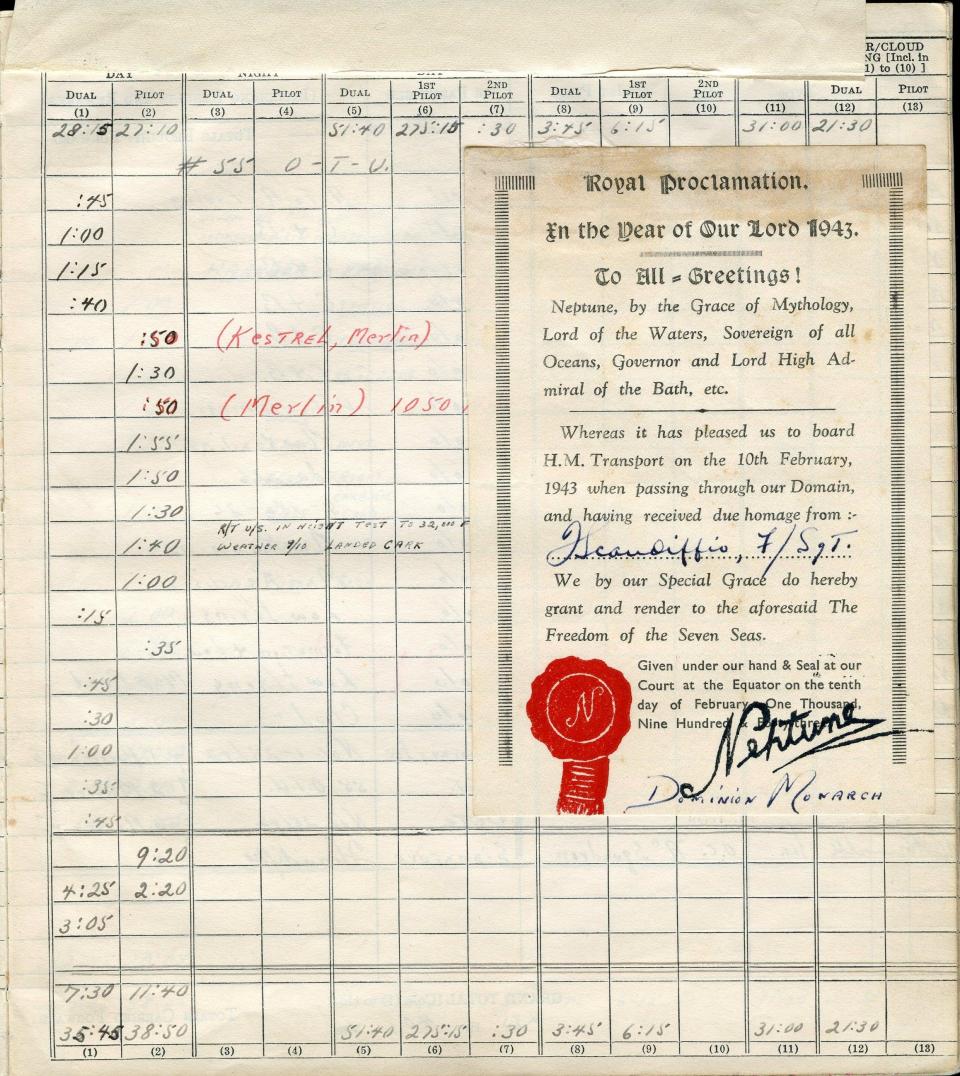 R/CLOUD
NG [Incl. in
1) to (10) ]
DAY NIGHT DAY
DUAL PILOT DUAL PILOT DUAL 1ST PILOT 2ND PILOT DUAL 1ST PILOT 2ND PILOT DUAL PILOT
(1) (2) (3) (4) (5) (6) (7) (8) (9) (10) (11) (12) (13)
28:15 27:10 51:40 275:15 :30 3:45 6:15 31:00 21:30
# 55 O-T-U.
:45
1:00
1:15
:40
:50 (KESTREL, Merlin)
1:30
:50 (Merlin) 1050
1:55
1:50
1:30
R/T U/S. IN HEIGHT TEST TO 32,000 F
1:40 WEATHER 9/10 LANDED CARK
1:00
:15
:35
:45
:30
1:00
:35
:45
9:20
4:25 2:20
3:05
7:30 11:40
35:45 38:50 51:40 275:15 :30 3:45 6:15 31:00 21:30
(1) (2) (3) (4) (5) (6) (7) (8) (9) (10) (11) (12) (13)
Royal Proclamation.
In the Year of Our Lord 1943.
To All = Greetings!
Neptune, by the Grace of Mythology,
Lord of the Waters, Sovereign of all
Oceans, Governor and Lord High Ad-
miral of the Bath, etc.
Whereas it has pleased us to board
H.M. Transport on the 10th February,
1943 when passing through our Domain,
and having received due homage from :-
Scandiffio, F/Sgt.
We by our Special Grace do hereby
grant and render to the aforesaid The
Freedom of the Seven Seas.
Given under our hand & Seal at our
Court at the Equator on the tenth
day of February One Thousand,
Nine Hundred & Forty three
N
Neptune
Dominion Monarch